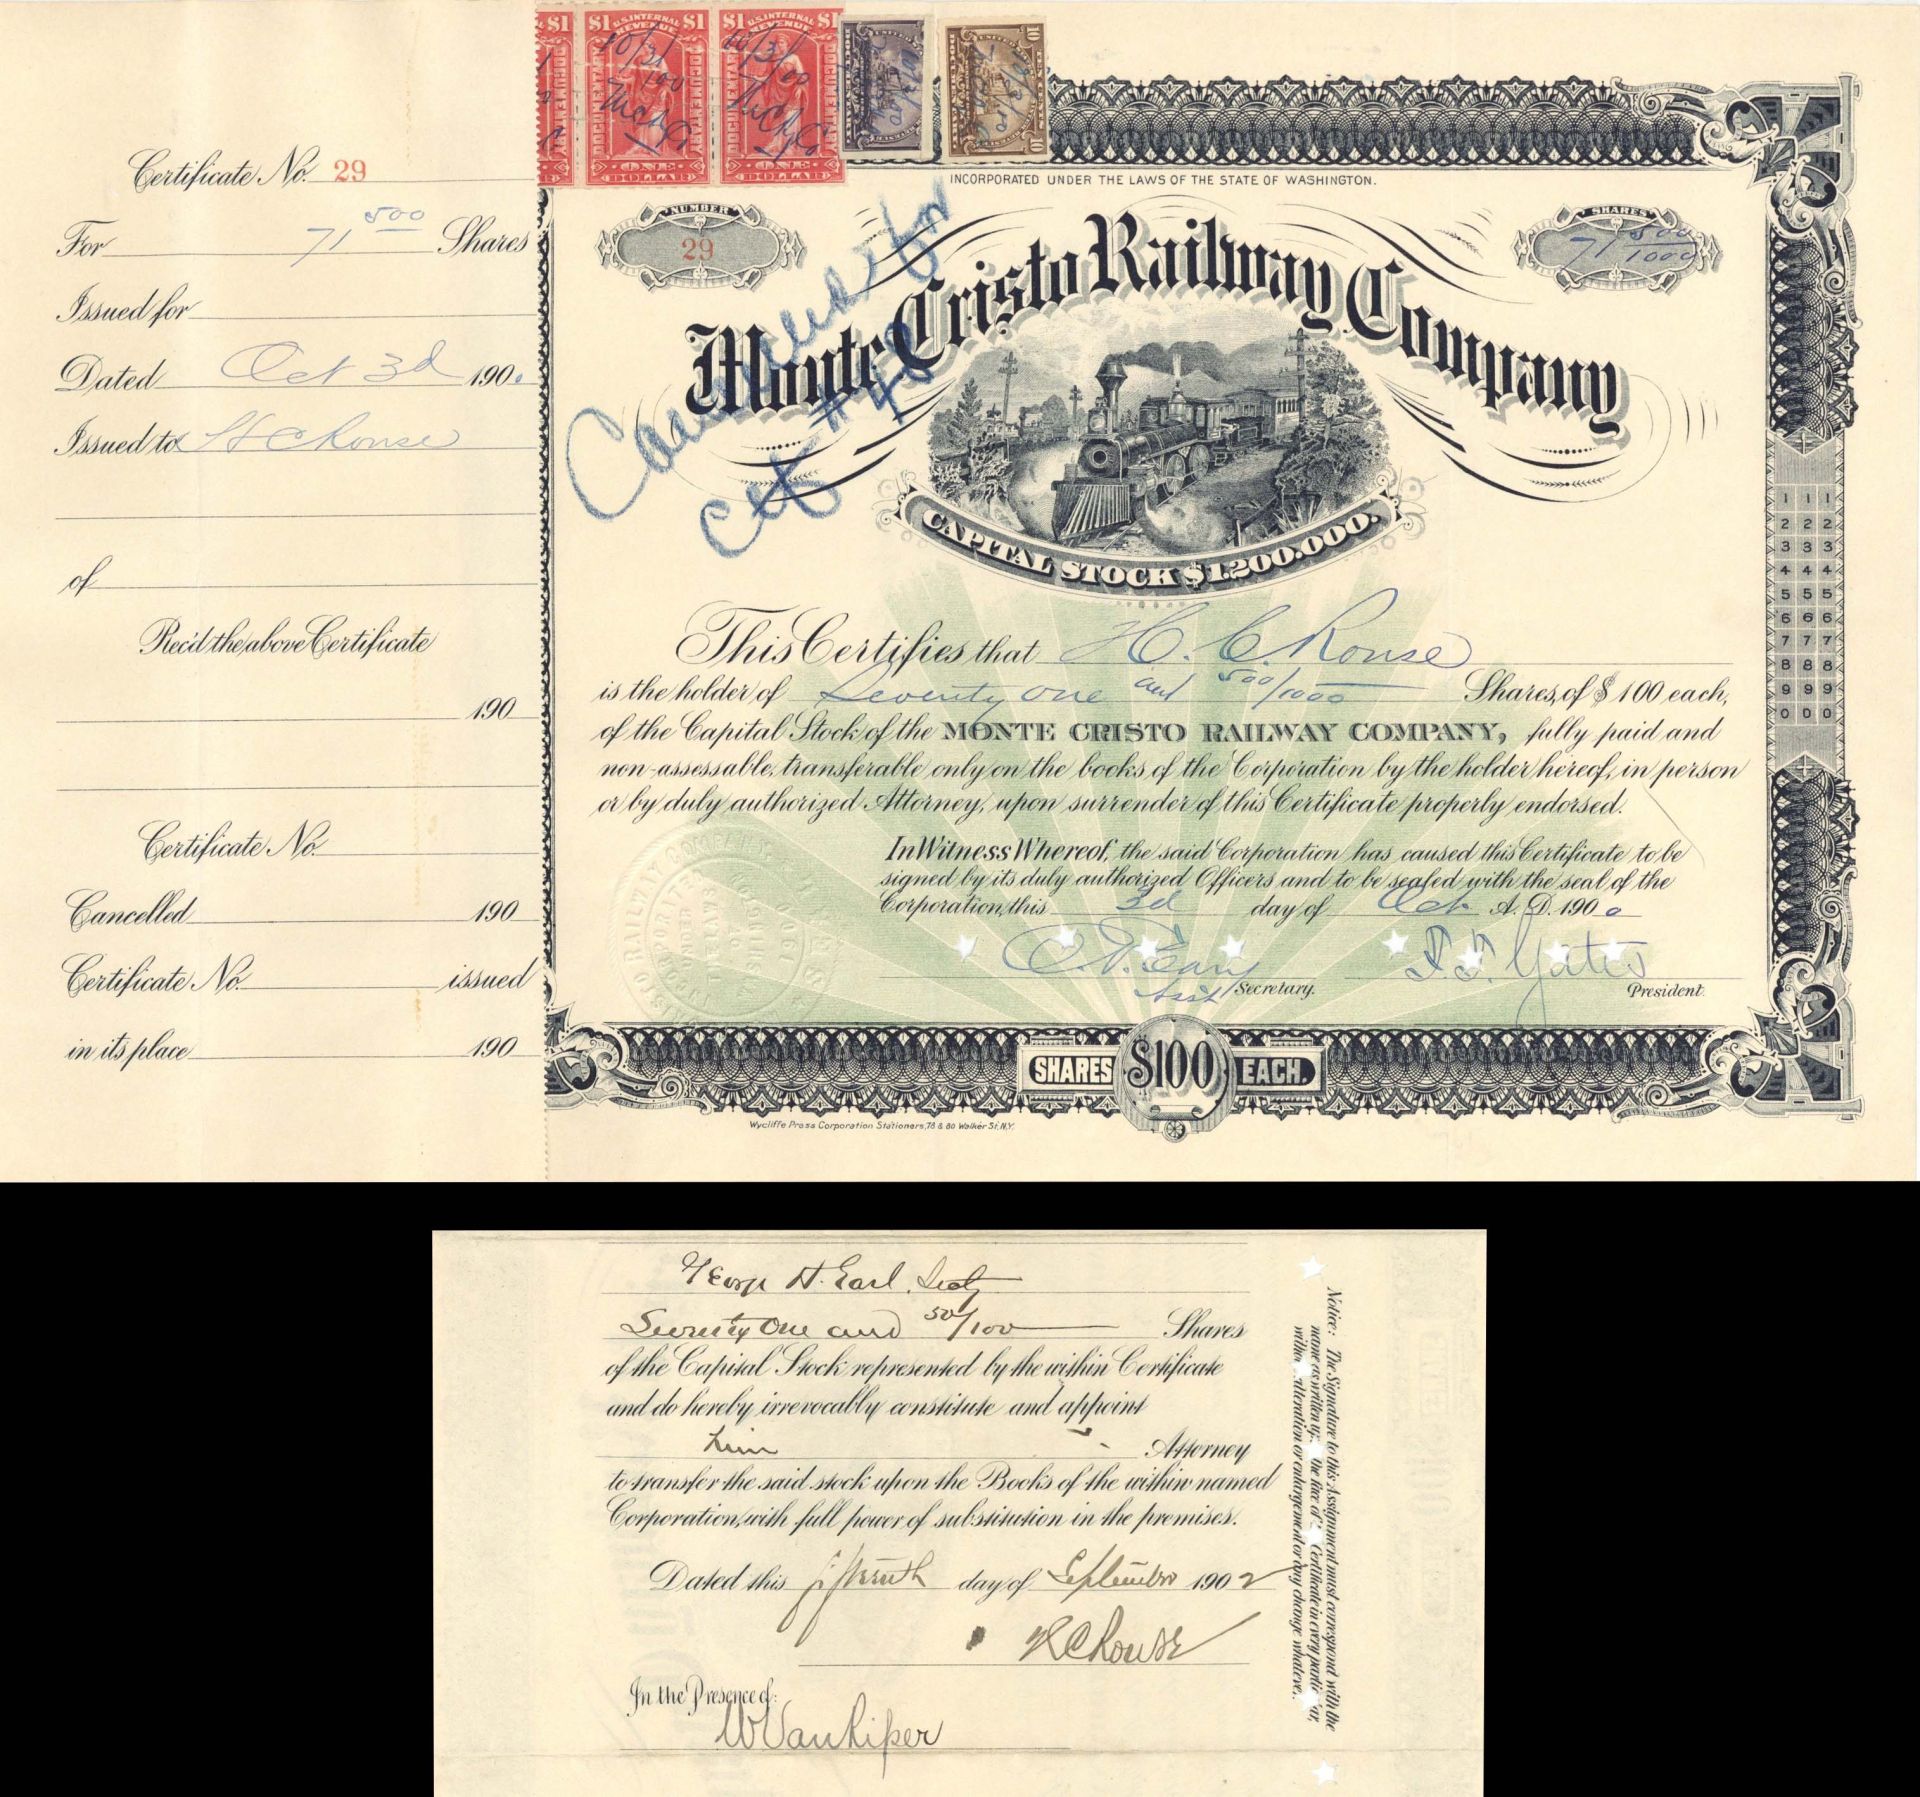 Certificate No. 29
For 71 500 Shares
Issued for
Dated Oct 3d 1900
Issued to H C Rouse
of
Rec'd the above Certificate
190
Certificate No.
Cancelled 190
Certificate No. issued
in its place 190
$1 U.S. INTERNAL REVENUE $1
DOCUMENTARY
ONE DOLLAR
10/3/00
$1 U.S. INTERNAL REVENUE $1
DOCUMENTARY
ONE DOLLAR
10/3/00
10
INCORPORATED UNDER THE LAWS OF THE STATE OF WASHINGTON.
NUMBER
29
SHARES
71 500/1000
Monte Cristo Railway Company
Cancelled & for
Cft #40
CAPITAL STOCK $1.200.000.
This Certifies that H. C. Rouse
is the holder of Seventy one and 500/1000 Shares, of $100 each,
of the Capital Stock of the MONTE CRISTO RAILWAY COMPANY, fully paid and
non-assessable, transferable only on the books of the Corporation by the holder hereof, in person
or by duly authorized Attorney, upon surrender of this Certificate properly endorsed.
In Witness Whereof, the said Corporation has caused this Certificate to be
signed by its duly authorized Officers and to be sealed with the seal of the
Corporation, this 3d day of Oct A.D. 1900
Asst Secretary.
President.
1 1 1
2 2 2
3 3 3
4 4 4
5 5 5
6 6 6
7 7 7
8 8 8
9 9 9
0 0 0
SHARES $100 EACH.
Wycliffe Press Corporation Stationers, 78 & 80 Walker St. N.Y.
George H. Earl, Secty
Seventy One and 50/100 Shares
of the Capital Stock represented by the within Certificate
and do hereby irrevocably constitute and appoint
him Attorney
to transfer the said stock upon the Books of the within named
Corporation, with full power of substitution in the premises.
Dated this fifteenth day of September 1902
H C Rouse
In the Presence of:
W Van Riper
Notice: The Signature to this Assignment must correspond with the
name as written upon the face of the Certificate in every particular,
without alteration or enlargement or any change whatever.